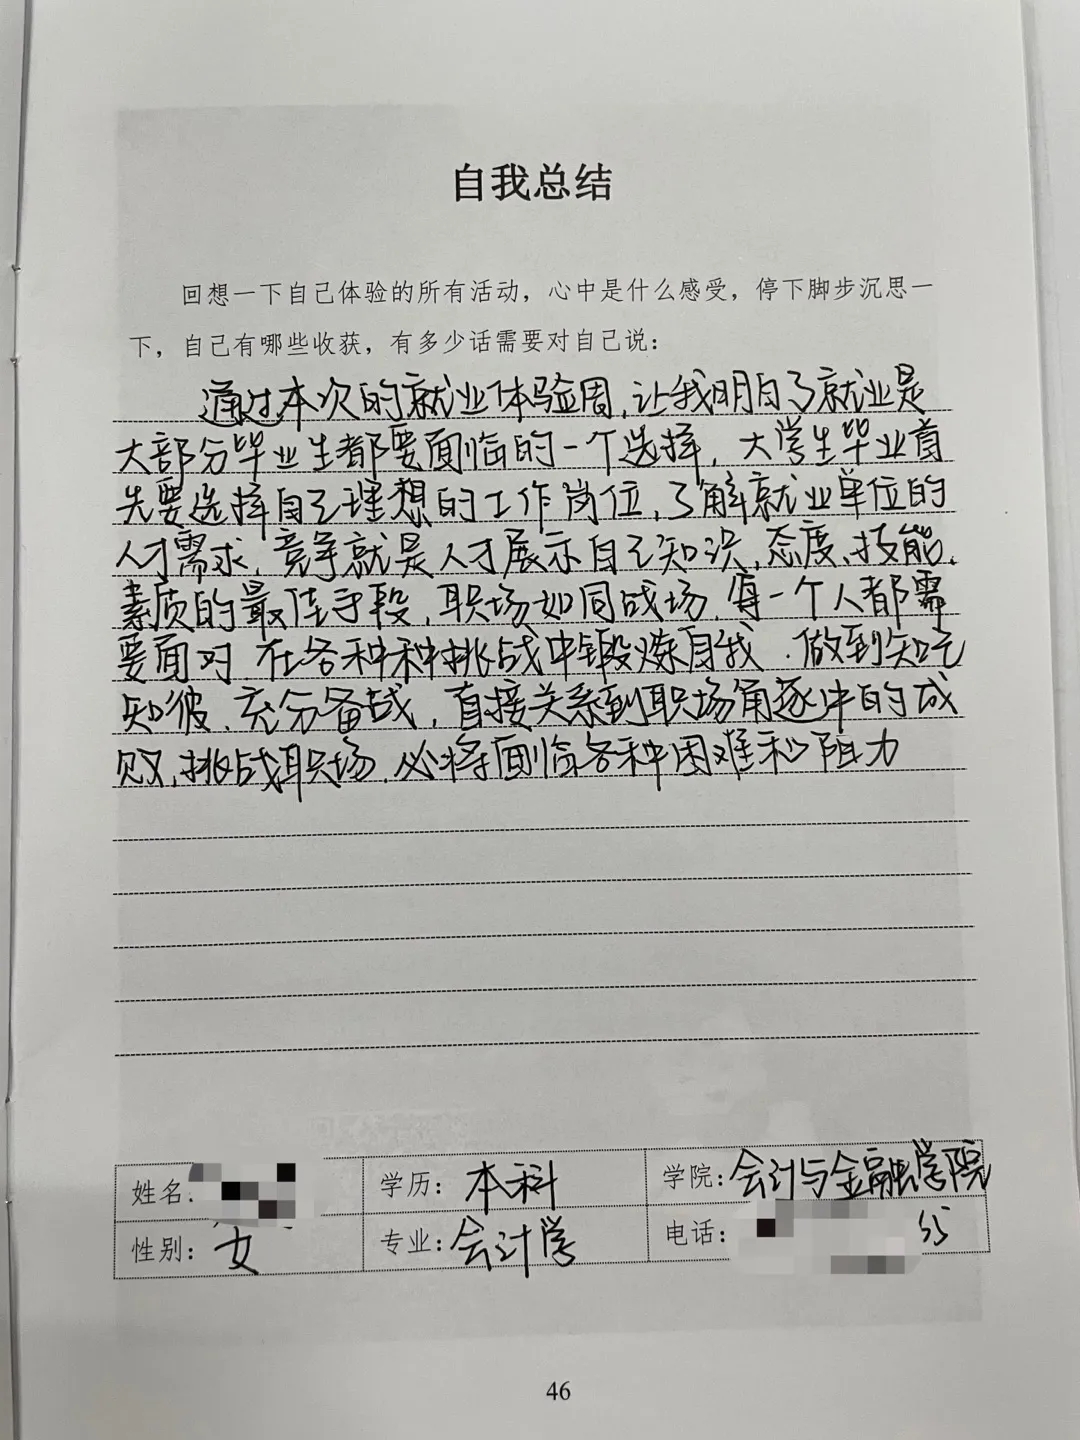 自我总结
回想一下自己体验的所有活动，心中是什么感受，停下脚步沉思一
下，自己有哪些收获，有多少话需要对自己说：
通过本次的就业体验周，让我明白了就业是
大部分毕业生都要面临的一个选择，大学生毕业首
先要选择自己理想的工作岗位，了解就业单位的
人才需求，竞争就是人才展示自己知识、态度、技能、
素质的最佳手段，职场如同战场，每一个人都需
要面对，在各种种挑战中锻炼自我，做到知己
知彼、充分备战，直接关系到职场角逐中的成
败，挑战职场，必将面临各种困难和阻力
姓名： 学历：本科 学院：会计与金融学院
性别：女 专业：会计学 电话：
46